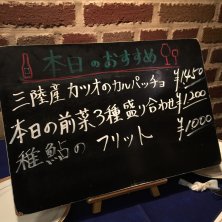 本日のおすすめ
三陸産カツオのカルパッチョ ¥1450
本日の前菜3種盛り合わせ ¥1200
稚鮎の フリット ¥1000